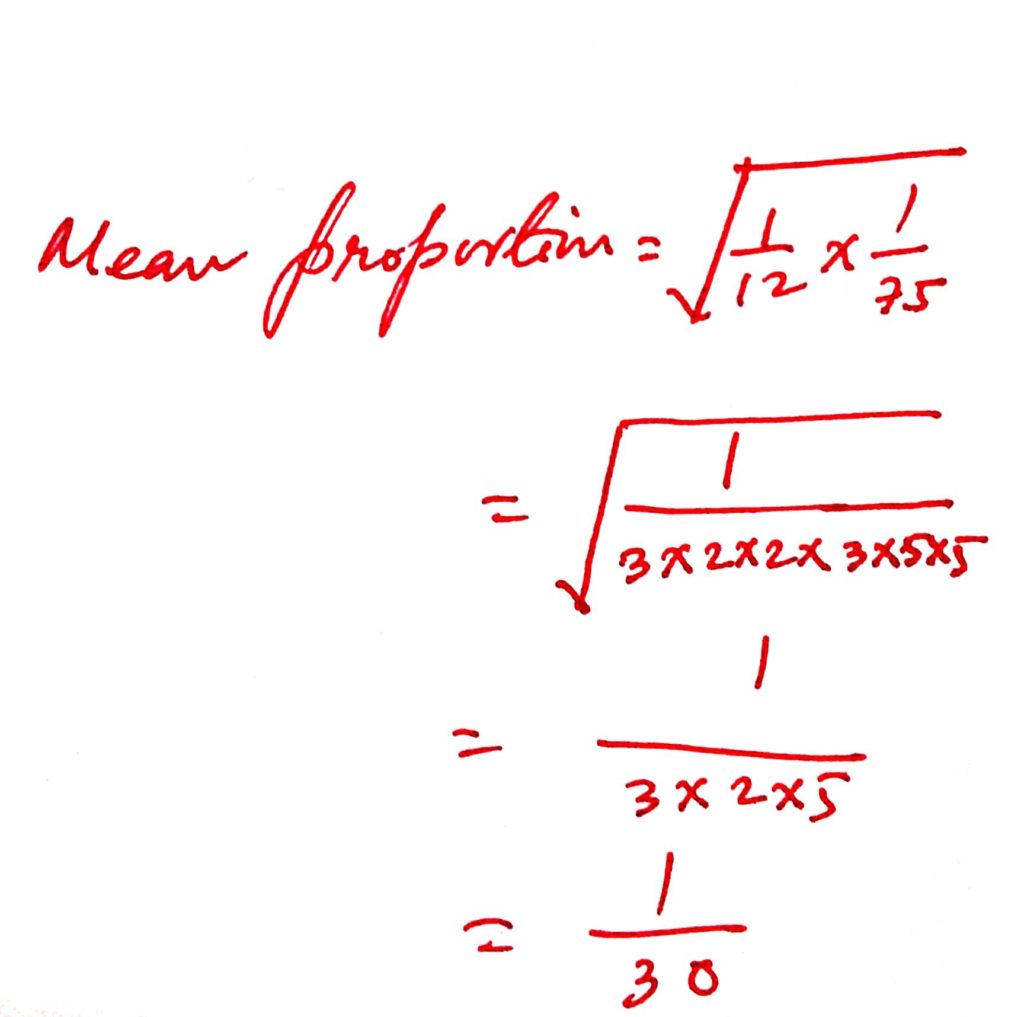 Mean proportion = √(1/12 × 1/75)
= √(1/(3×2×2×3×5×5))
= 1/(3×2×5)
= 1/30